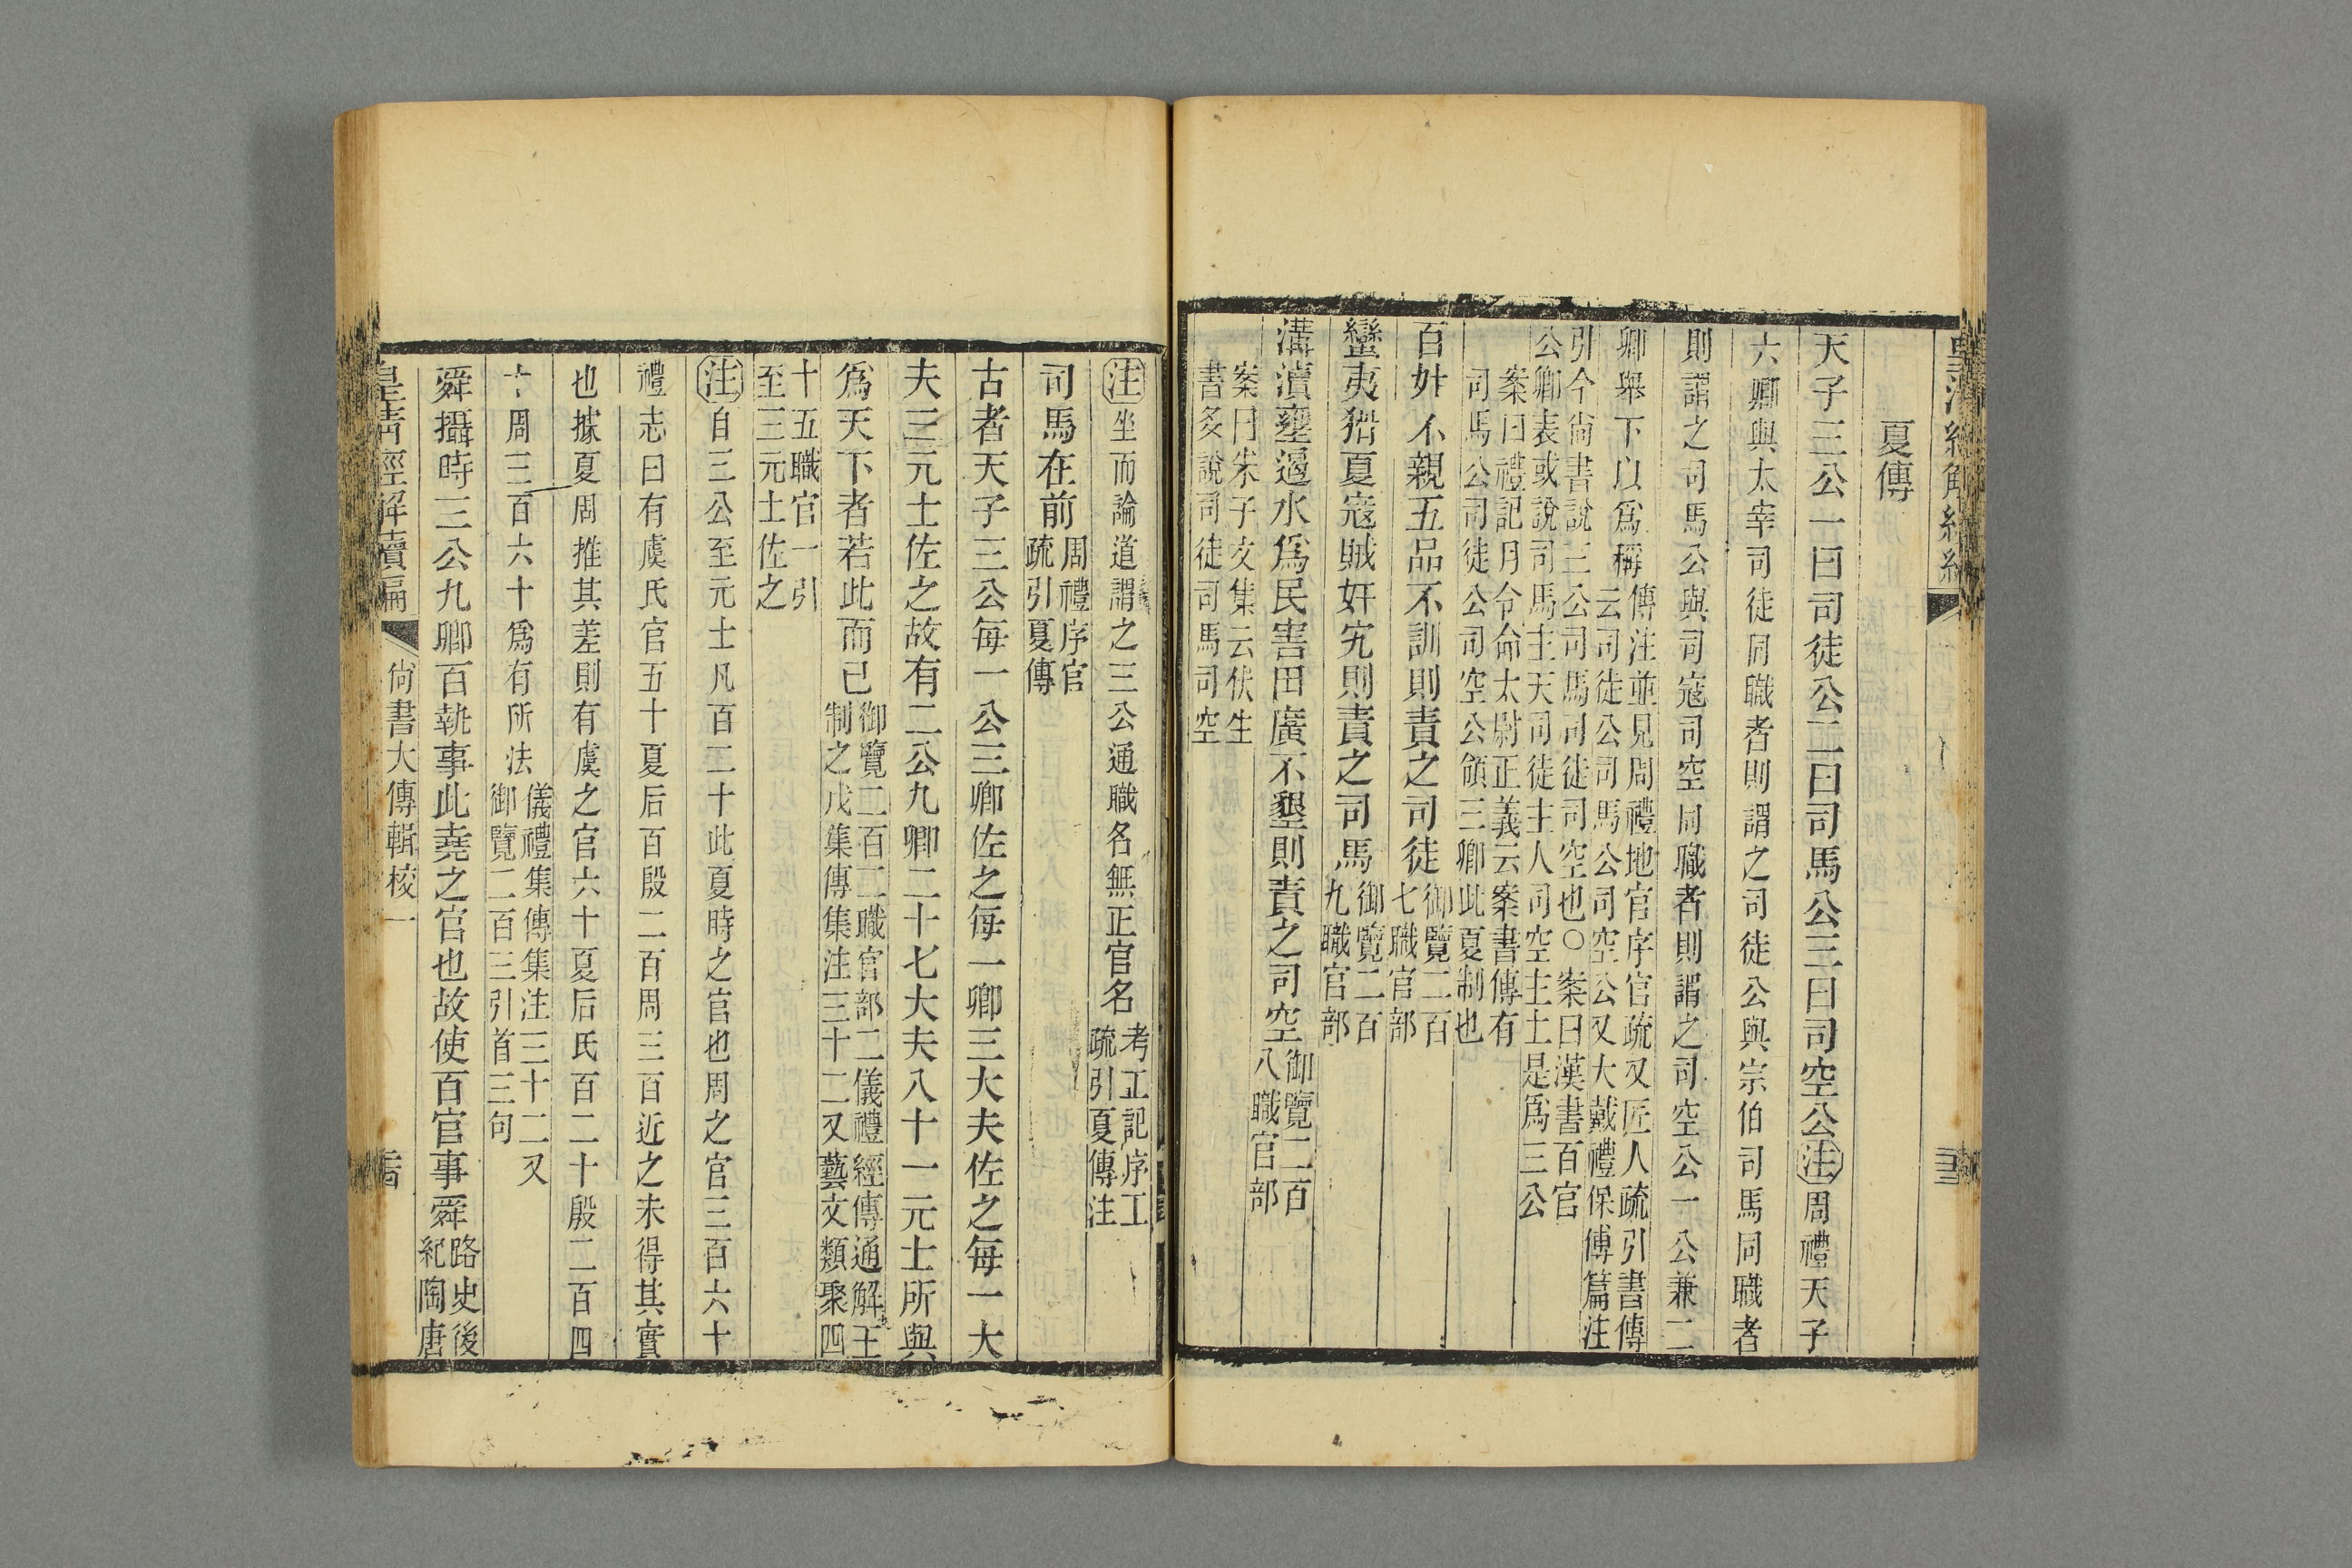 夏傳
天子三公一曰司徒公二曰司馬公三曰司空公注周禮天子
六卿與太宰司徒同職者則謂之司徒公與宗伯司馬同職者
則謂之司馬公與司寇司空同職者則謂之司空公一公兼二
卿舉下以爲稱傳注並見周禮地官序官疏又匠人疏引書傳
云司徒公司馬公司空公又大戴禮保傅篇注
引今尚書說三公司馬司徒司空也○案曰漢書百官
公卿表或說司馬主天司徒主人司空主土是爲三公
案曰禮記月令命太尉正義云案書傳有
司馬公司徒公司空公領三卿此夏制也
百姓不親五品不訓則責之司徒御覽二百
七職官部
蠻夷猾夏寇賊奸宄則責之司馬御覽二百
九職官部
溝瀆壅遏水爲民害田廣不墾則責之司空御覽二百
八職官部
案曰朱子文集云伏生
書多說司徒司馬司空
注坐而論道謂之三公通職名無正官名考工記序工
疏引夏傳注
司馬在前周禮序官
疏引夏傳
古者天子三公每一公三卿佐之每一卿三大夫佐之每一大
夫三元士佐之故有三公九卿二十七大夫八十一元士所與
爲天下者若此而已御覽二百二職官部二儀禮經傳通解王
制之戊集傳集注三十二又藝文類聚四
十五職官一引
至三元士佐之
注自三公至元士凡百二十此夏時之官也周之官三百六十
禮志曰有虞氏官五十夏后百殷二百周三百近之未得其實
也據夏周推其差則有虞之官六十夏后氏百二十殷二百四
十周三百六十爲有所法儀禮集傳集注三十二又
御覽二百三引首三句
舜攝時三公九卿百執事此堯之官也故使百官事舜路史後
紀陶唐
皇清經解續編
尚書大傳輯校一